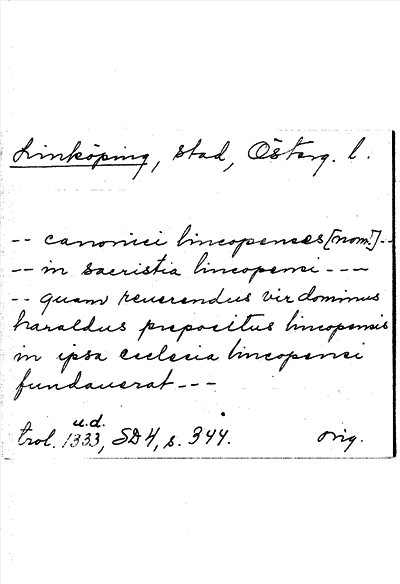 Linköping, stad, Österg. l.
-- canonici lincopenses [nom.] --
-- in sacristia lincopensi ---
-- quam reuerendus vir dominus
haraldus prepositus lincopensis
in ipsa ecclesia lincopensi
fundauerat ---
u.d.
trol. 1333, SD4, s. 344. orig.